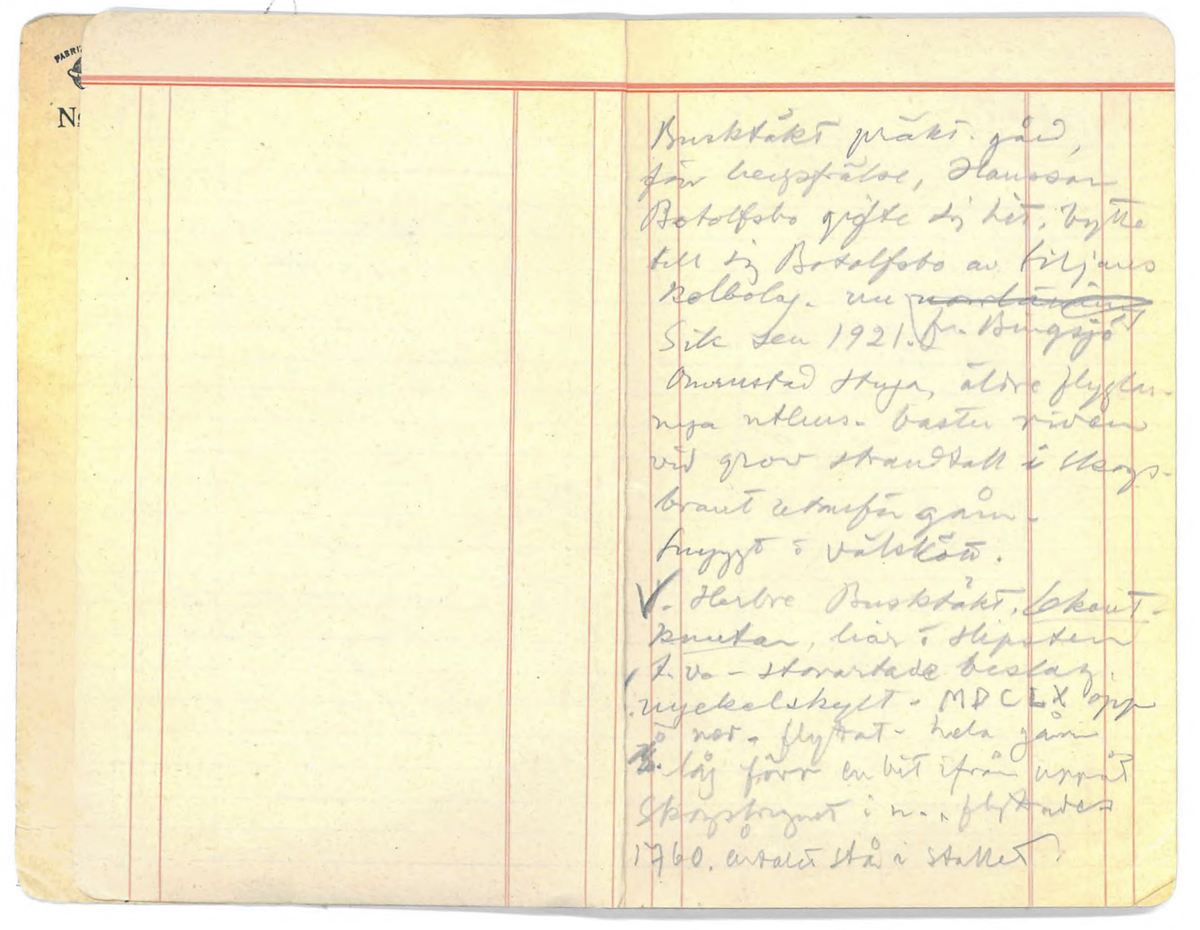 FABRI
N
Busktäkt präkt. gård,
förr bergsfrälse, Hansson
Botolfsbo gifte sig hit, bytte
till sig Botolfsbo av Liljans
Kolbolag. nu
Sik sen 1921. fr. Bingsjö
Omenstad stuga, äldre flyglar.
nya uthus. bastu riven
vid grov strandtall i skogs-
brant utanför gårn.
Snyggt o välskött.
V. Herbre Busktäkt. 6kant-
knutar, liar i slipsten
t.v. – storartade beslag.
nyckelskylt. MDCLX opp
o ner. flyttat – hela gårn
låg förr en bit ifrån uppåt
Skogsbrynet i n., flyttades
1760. årtalet står i stallet